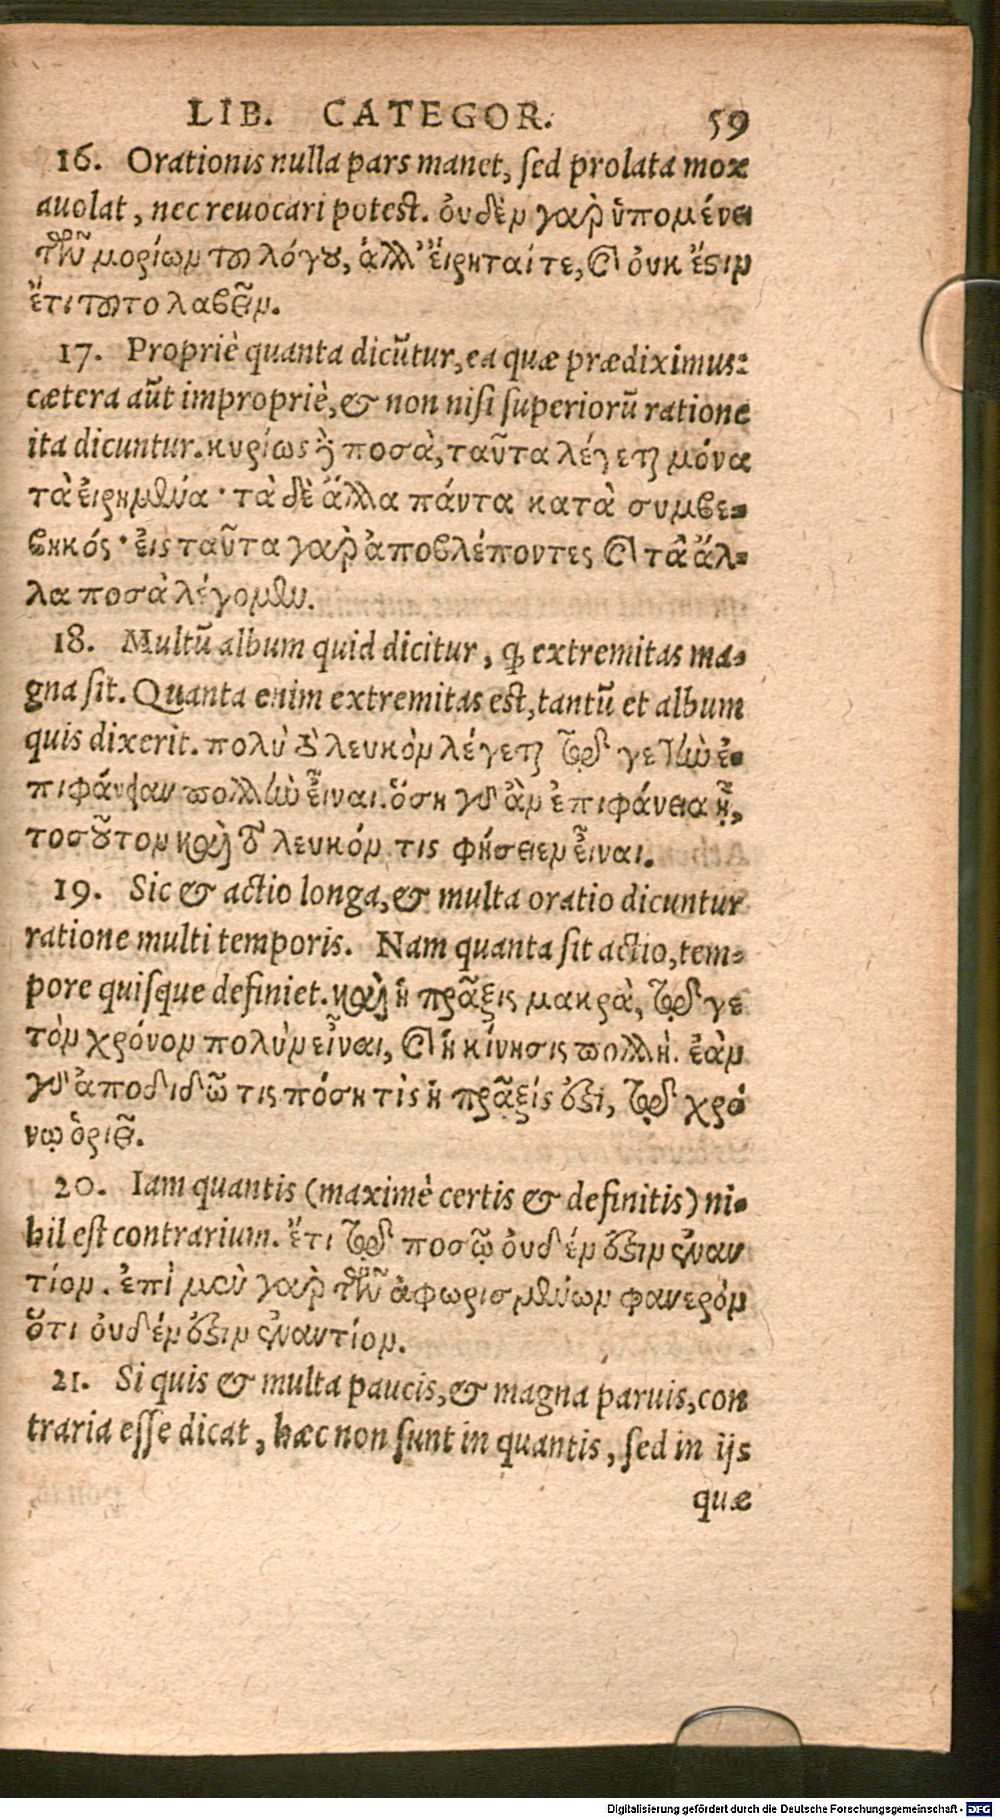 LIB. CATEGOR. 59
16. Orationis nulla pars manet, sed prolata mox
auolat, nec reuocari potest. οὐδὲν γὰρ ὑπομένει
τῶν μορίων τοῦ λόγου, ἀλλ' εἴρηταί τε, καὶ οὐκ ἔστιν
ἔτι τοῦτο λαβεῖν.
17. Propriè quanta dicūtur, ea quæ prædiximus:
cætera aūt impropriè, & non nisi superiorū ratione
ita dicuntur. κυρίως δὲ ποσὰ, ταῦτα λέγεται μόνα
τὰ εἰρημένα· τὰ δὲ ἄλλα πάντα κατὰ συμβε-
βηκός· εἰς ταῦτα γὰρ ἀποβλέποντες καὶ τὰ ἄλ-
λα ποσὰ λέγομεν.
18. Multū album quid dicitur, ꝙ extremitas ma-
gna sit. Quanta enim extremitas est, tantū et album
quis dixerit. πολὺ τὸ λευκὸν λέγεται τῷ γε τὴν ἐ-
πιφάνειαν πολλὴν εἶναι. ὅση γὰρ ἂν ἐπιφάνεια ᾖ,
τοσοῦτον καὶ τὸ λευκόν τις φήσειεν εἶναι.
19. Sic & actio longa, & multa oratio dicuntur
ratione multi temporis. Nam quanta sit actio, tem-
pore quisque definiet. καὶ ἡ πρᾶξις μακρὰ, τῷ γε
τὸν χρόνον πολὺν εἶναι, καὶ ἡ κίνησις πολλή. ἐὰν
γὰρ ἀποδιδῶ τις πόση τὶς ἡ πρᾶξίς ἐστι, τῷ χρό
νῳ ὁριεῖ.
20. Iam quantis (maximè certis & definitis) ni-
hil est contrarium. ἔτι τῷ ποσῷ οὐδέν ἐστιν ἐναν
τίον. ἐπὶ μὲν γὰρ τῶν ἀφωρισμένων φανερὸν
ὅτι οὐδέν ἐστιν ἐναντίον.
21. Si quis & multa paucis, & magna paruis, con
traria esse dicat, hæc non sunt in quantis, sed in ijs
quæ
Digitalisierung gefördert durch die Deutsche Forschungsgemeinschaft - DFG